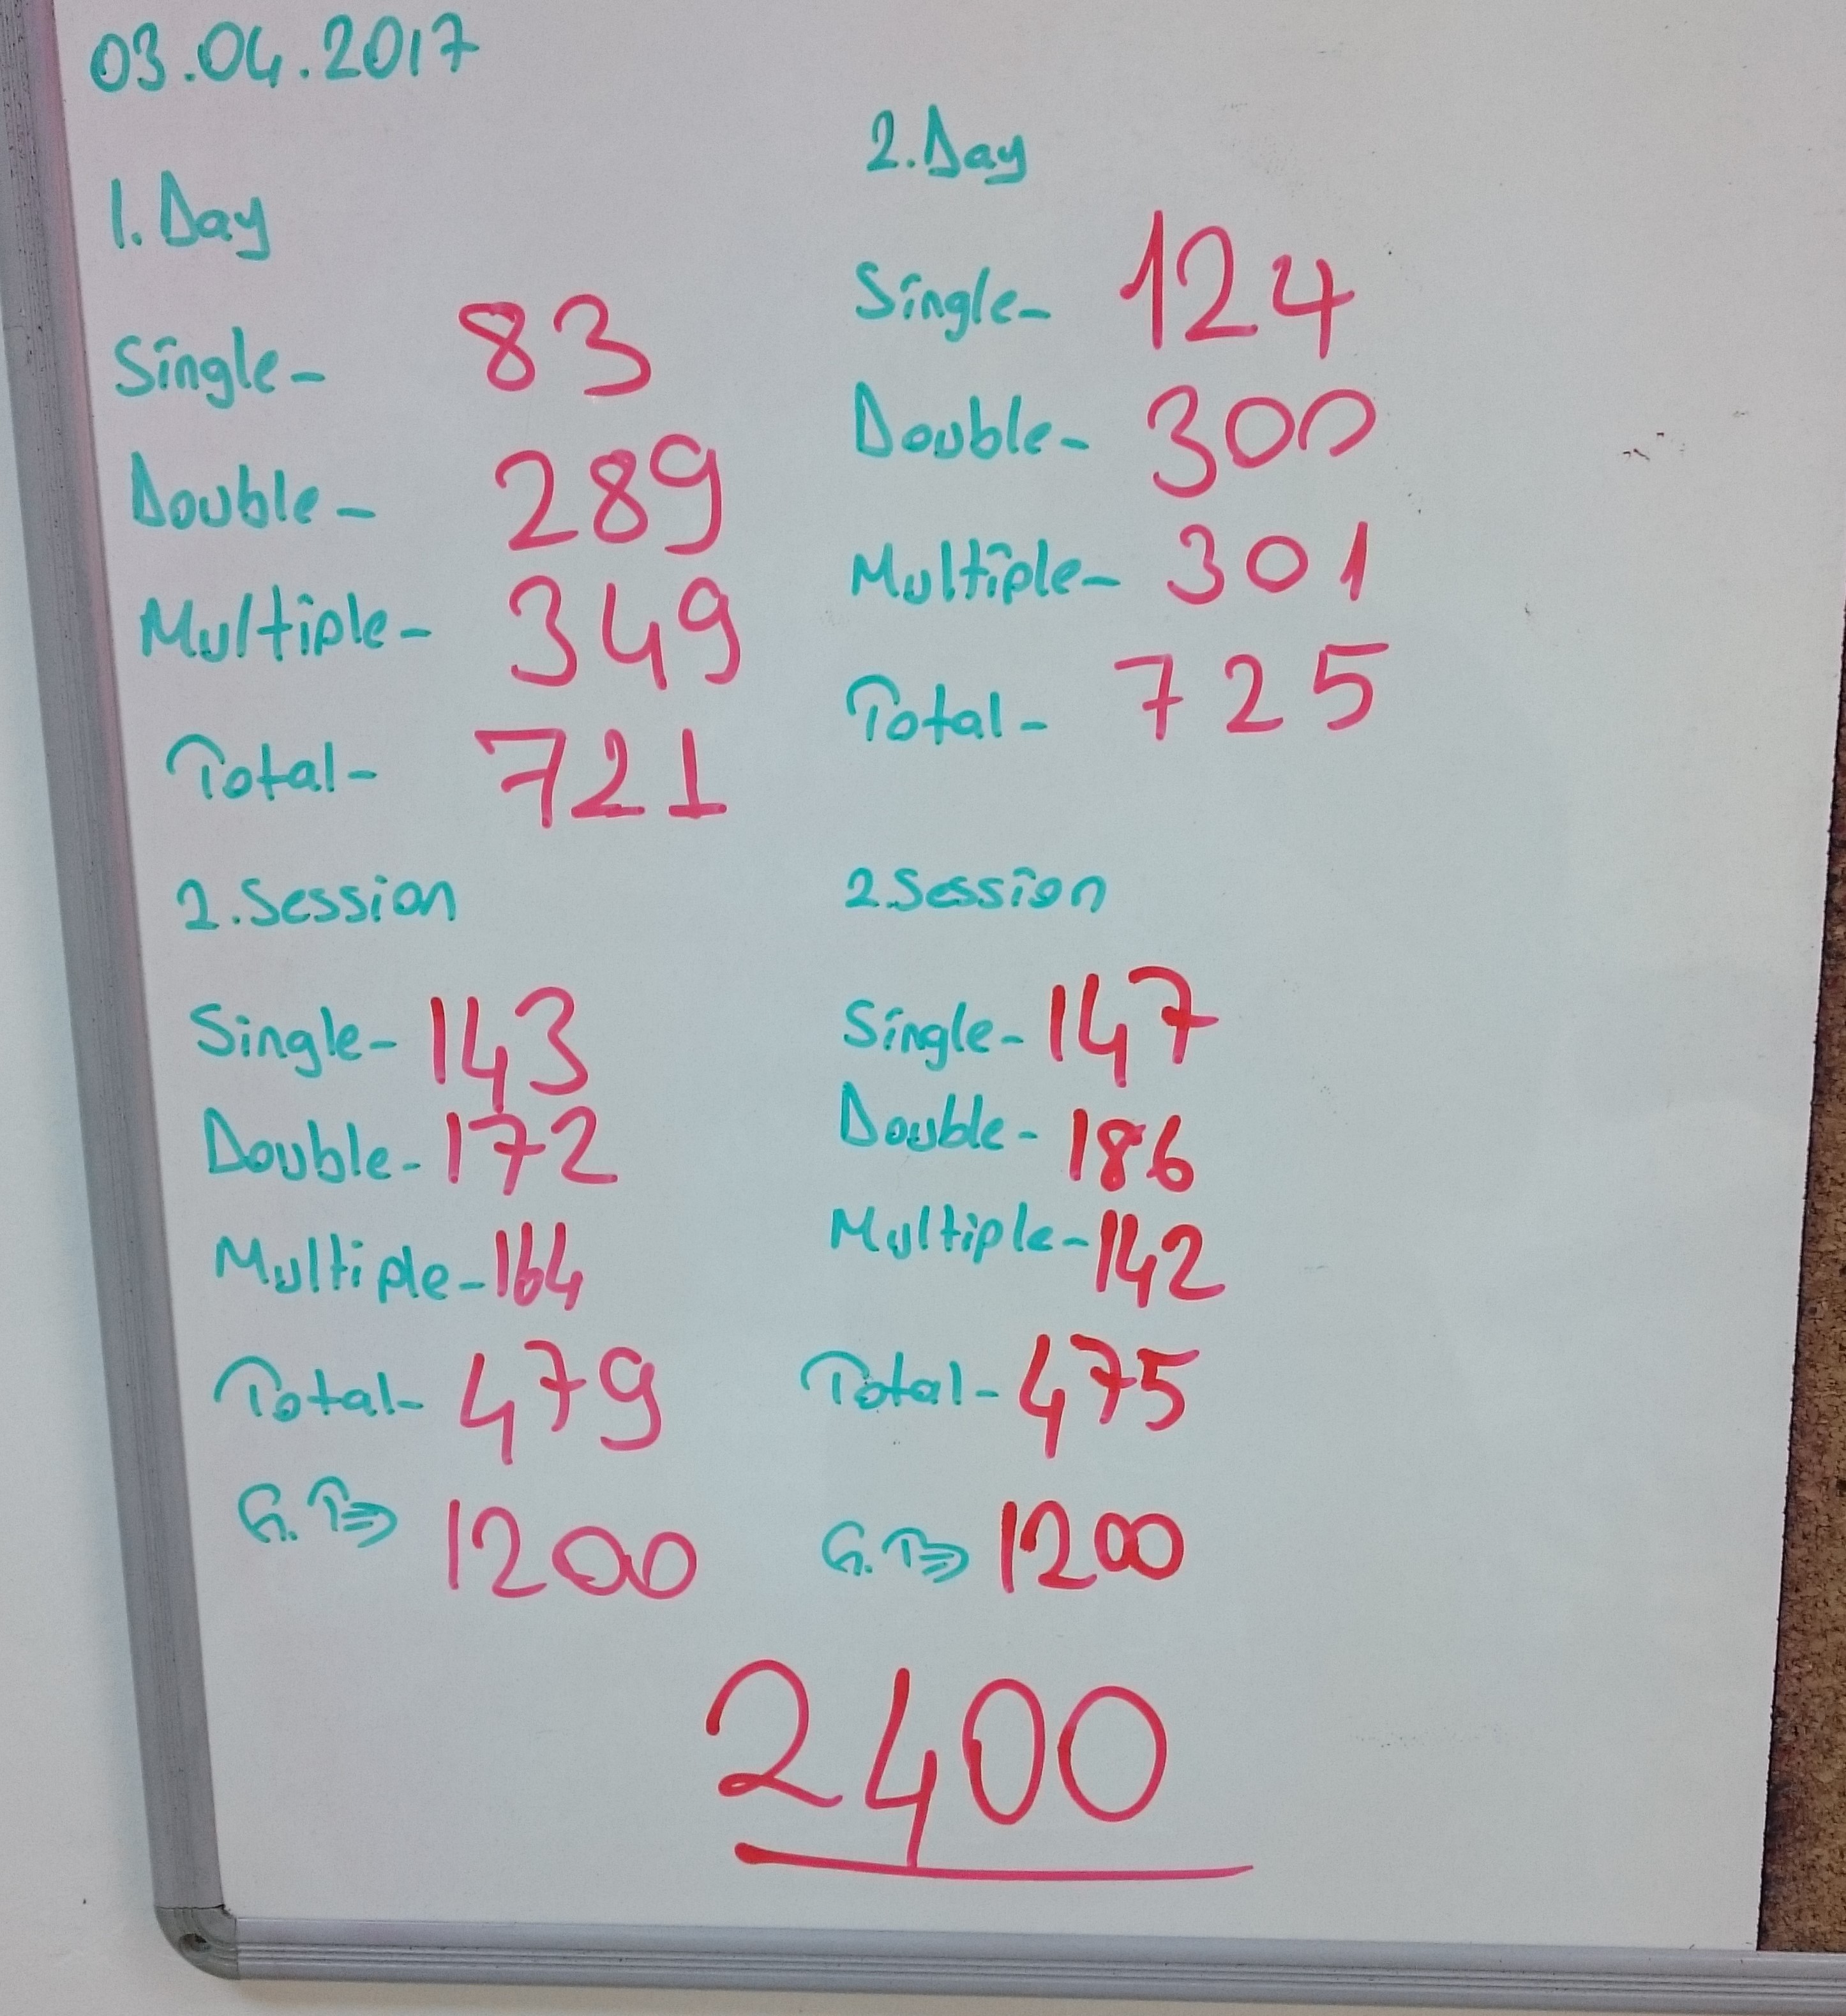 03.04.2017
1.Day
Single- 83
Double- 289
Multiple- 349
Total- 721
2.Session
Single- 143
Double- 172
Multiple- 164
Total- 479
G.T⇒ 1200
2.Day
Single- 124
Double- 300
Multiple- 301
Total- 725
2.Session
Single- 147
Double- 186
Multiple- 142
Total- 475
G.T⇒ 1200
2400